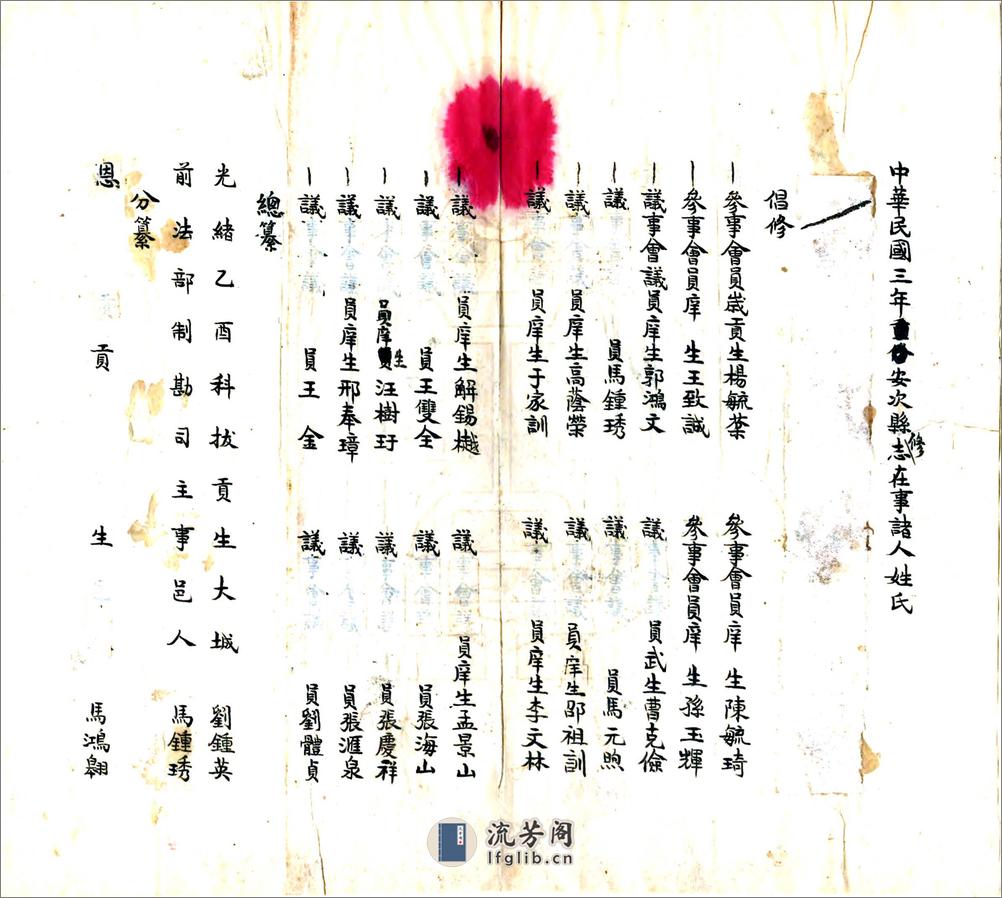 中華民國三年重修安次縣志在事諸人姓氏
倡修
參事會員歲貢生楊毓棻 參事會員庠 生陳毓琦
參事會員庠 生王致誠 參事會員庠 生孫玉輝
議事會議員庠生郭鴻文 議 員武生曹克儉
議 員馬鍾琇 議事會議 員馬元煦
議事會議員庠生高蔭榮 議事會議員庠生邵祖訓
議事會議員庠生于家訓 議事會議員庠生李文林
議事會議員庠生解錫樾 議事會議員庠生孟景山
議事會議 員王雙全 議事會議員張海山
議 員庠生汪樹玗 議事會議員張慶祥
議事會議員庠生邢奉璋 議 員張滙泉
議 員王 金 議事會議員劉體貞
總纂
光緒乙酉科拔貢生大城 劉鍾英
前法部制勘司主事邑人 馬鍾琇
分纂
恩 貢 生 馬鴻翱
流芳阁
lfglib.cn